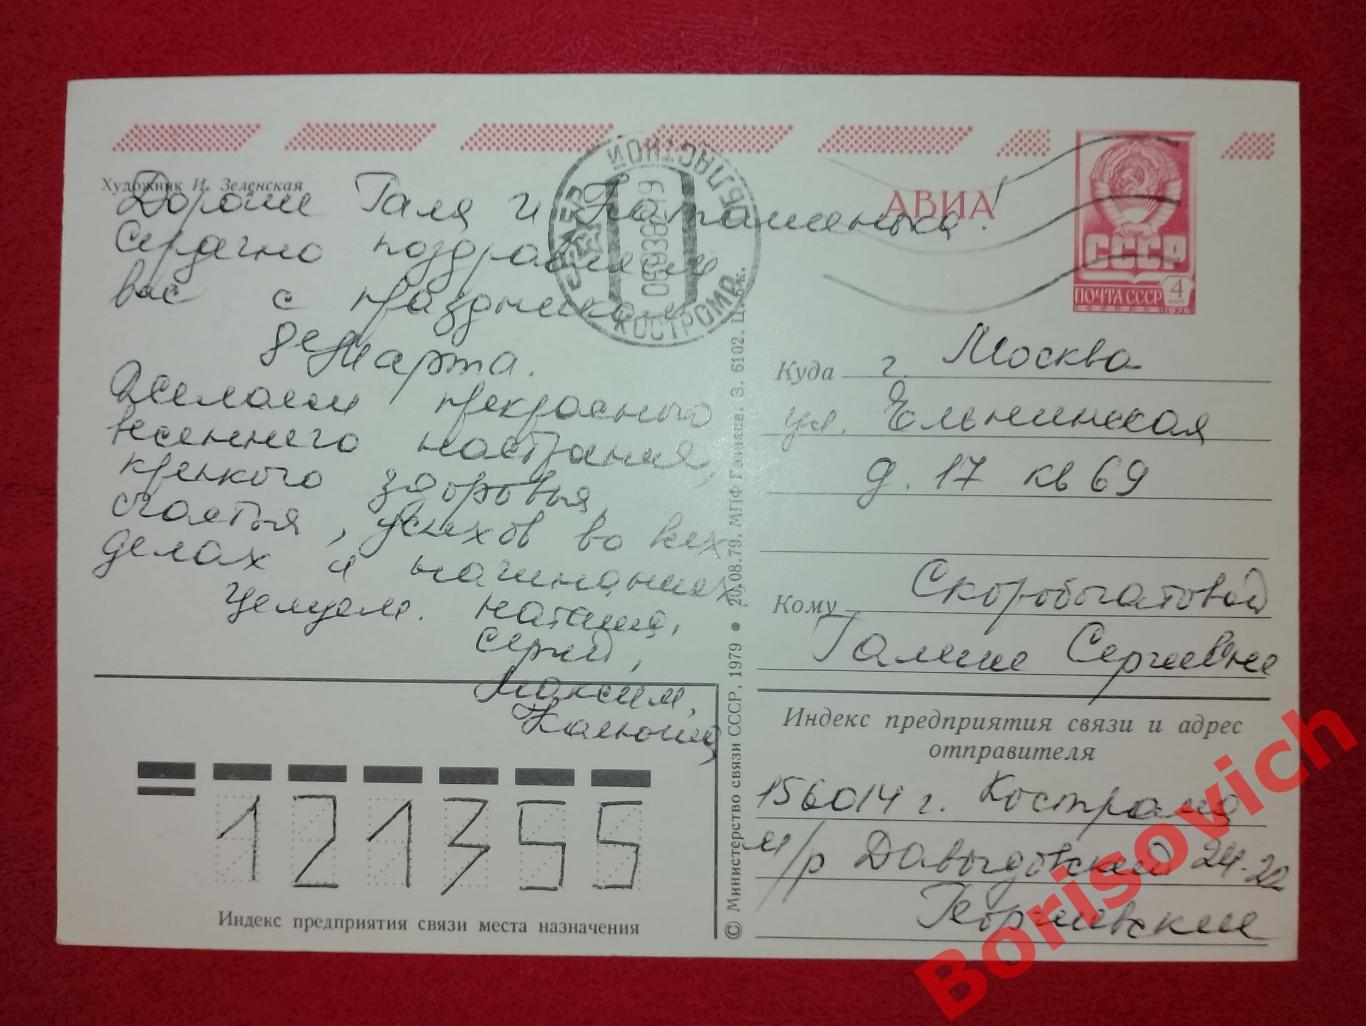 Художник И. Зеленская
АВИА
СССР
ПОЧТА СССР 4 коп
1978
КОСТРОМА
Дорогие Галя и Наташенька!
Сердечно поздравляем
вас с праздником
8е Марта.
Желаем прекрасного
весеннего настрания,
крепкого здоровья,
счастья, успехов во всех
делах и начинаниях
Целуем. Наташа,
Сергей,
Максим,
Катюша
Куда г. Москва
ул. Ельнинская
д. 17 кв 69
Кому Скоробогатовой
Галине Сергеевне
Индекс предприятия связи и адрес
отправителя
156014 г. Кострома
м/р Давыдовский 24-22
Георгиевские
121355
Индекс предприятия связи места назначения
© Министерство связи СССР, 1979 ● 20.08.79. МПФ Гознака. З. 6102. Ц. 6 к.
Borisovich